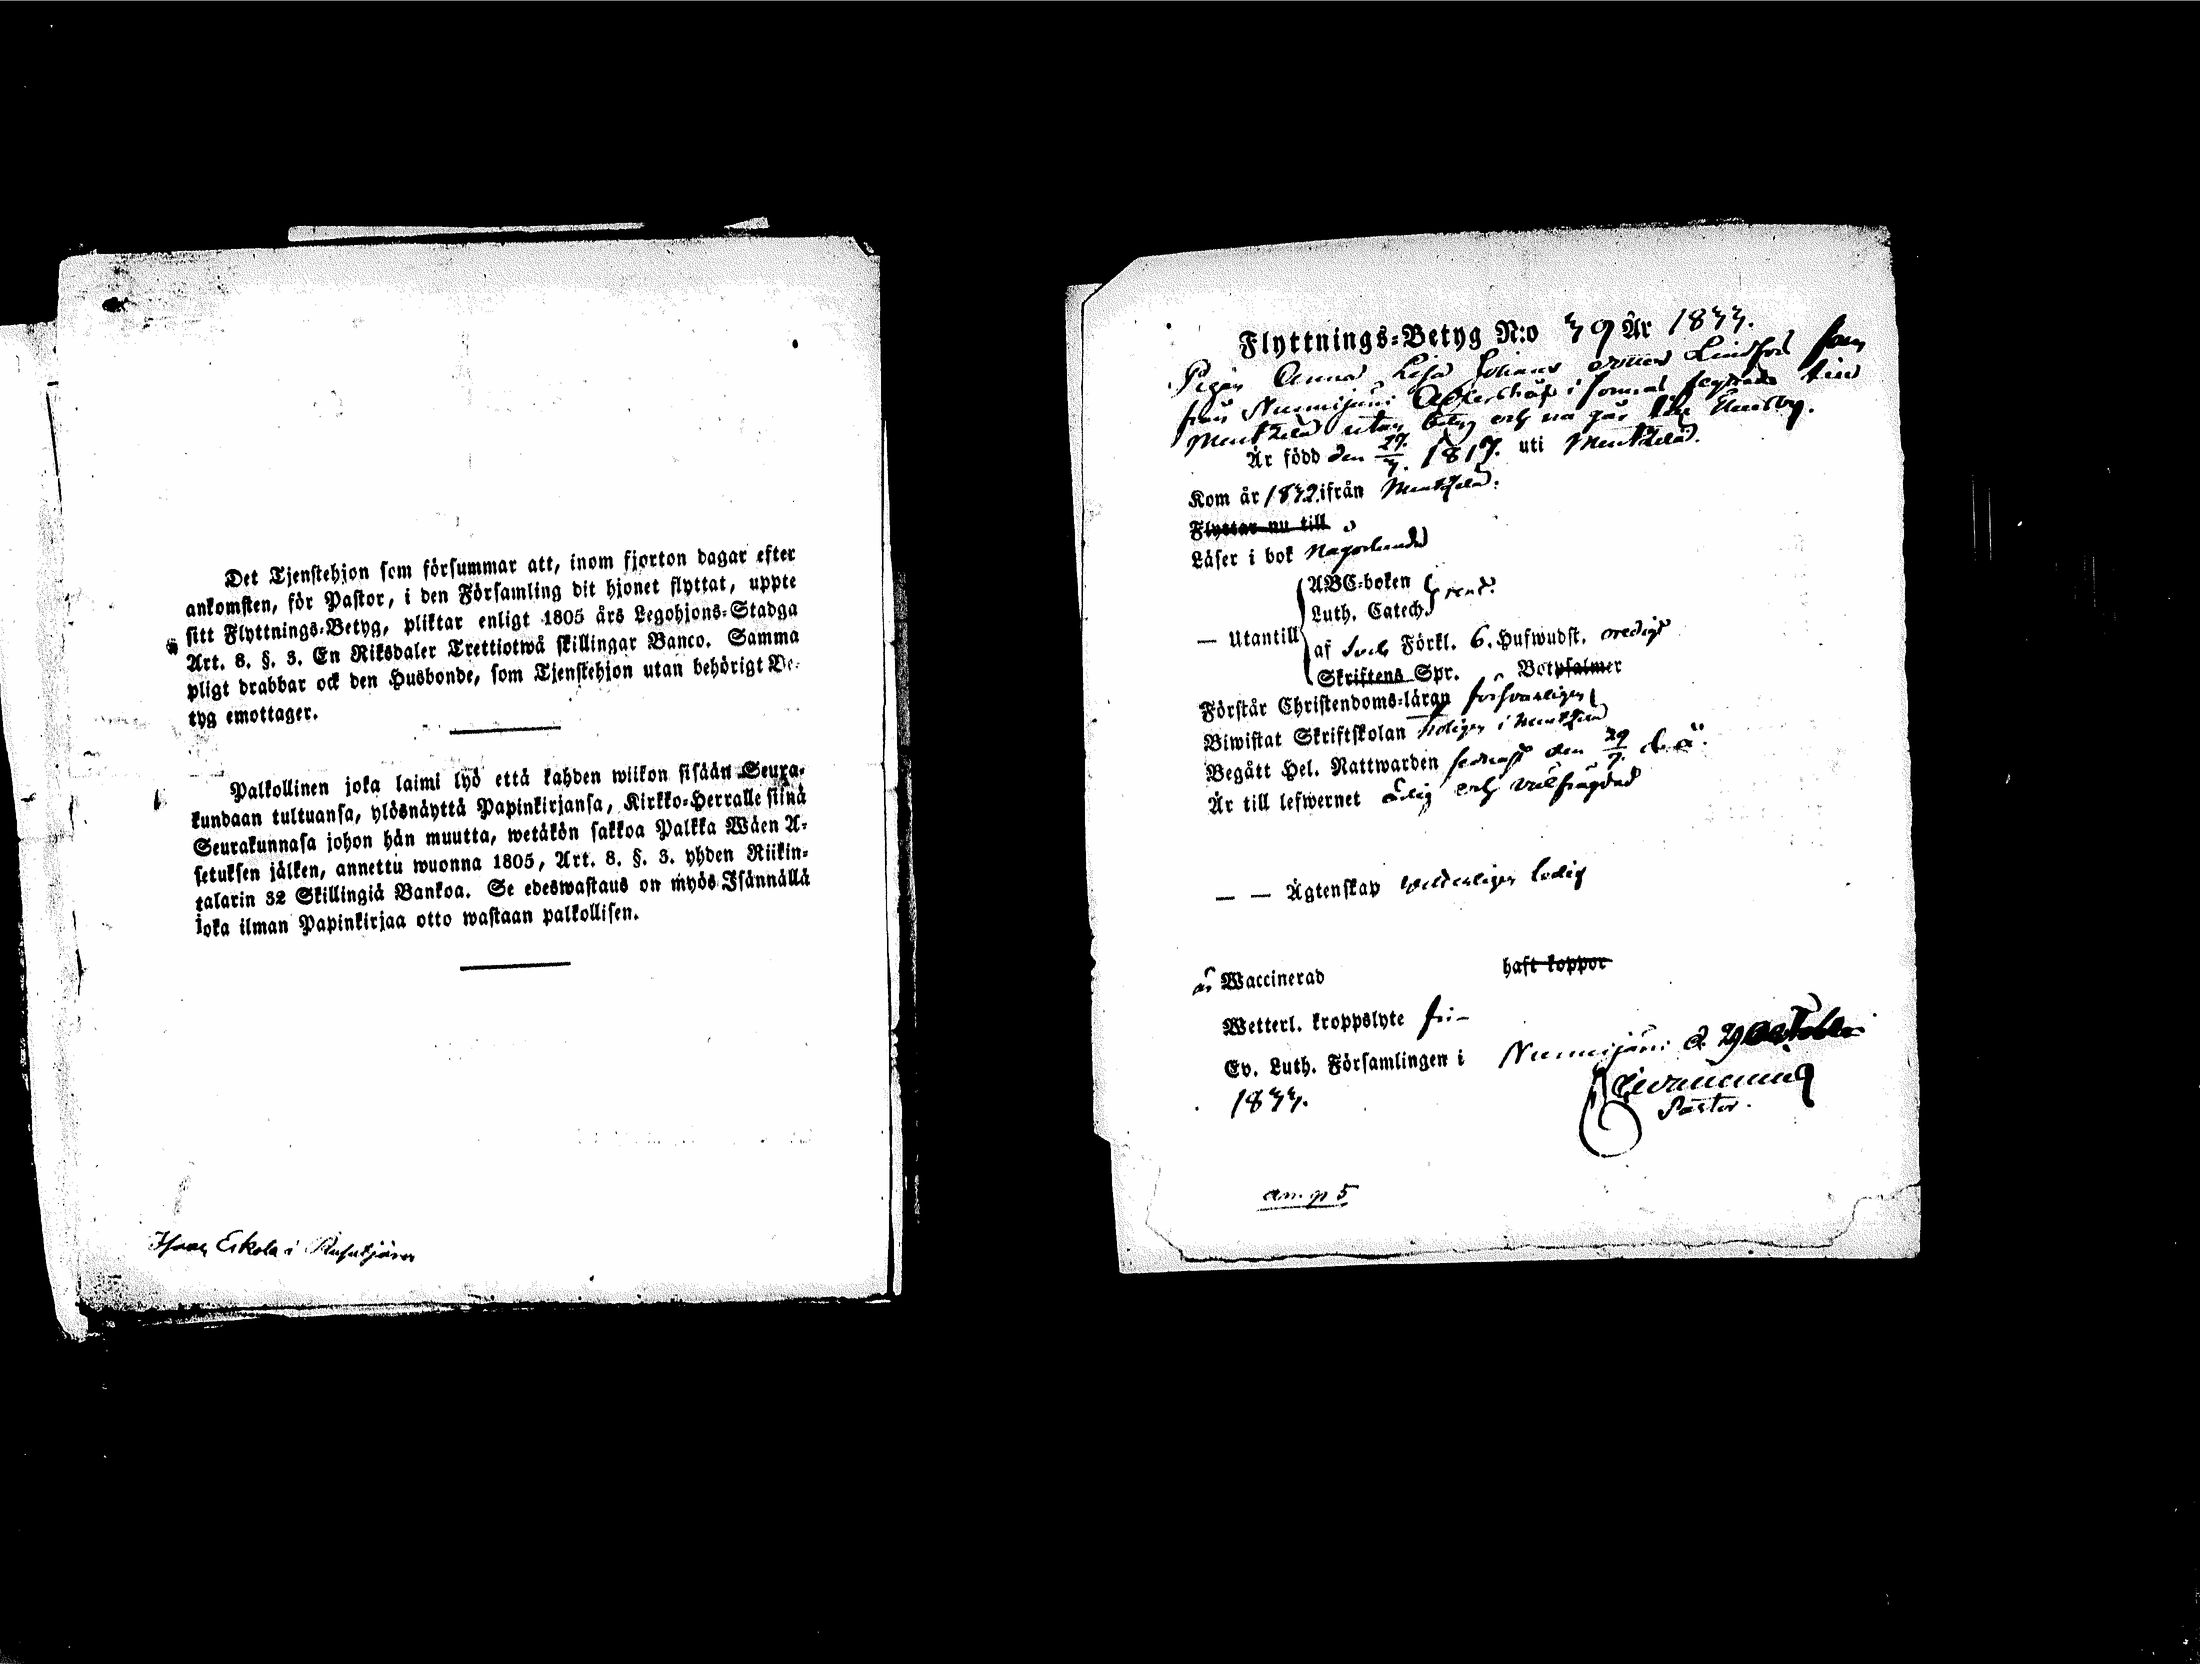 Det Tjenstehjon som försummar att, inom fjorton dagar efter
ankomsten, för Pastor, i den Församling dit hjonet flyttat, uppte
sitt Flyttnings-Betyg, pliktar enligt 1805 års Legohjons-Stadga
Art. 8. §. 3. En Riksdaler Trettiotwå skillingar Banco. Samma
pligt drabbar ock den Husbonde, som Tjenstehjon utan behörigt Be-
tyg emottager.
Palkollinen joka laimi lyö että kahden wiikon sisään Seura-
kundaan tultuansa, ylösnäyttä Papinkirjansa, Kirkko-Herralle siinä
Seurakunnasa johon hän muutta, wetäkön sakkoa Palkka Wäen A-
setuksen jälken, annettu wuonna 1805, Art. 8. §. 3. yhden Riikin-
talarin 32 Skillingiä Bankoa. Se edeswastaus on myös Isännällä
joka ilman Papinkirjaa otto wastaan palkollisen.
Isaac Eskola i Rusutjärvi
Flyttnings-Betyg N:o 39 År 1833.
Pigan Anna Lisa Johans dotter Lindfors som
från Nurmijärvi i flyttade till
Mentzelä utan betyg och nu går till
Är född den 27/3. 1817. uti Mentzelä.
Kom år 1832 ifrån Mentzelä.
Flyttar nu till
Läser i bok någorlunda
ABC-boken
Luth. Catech.
— Utantill
af Förkl. 6. Hufwudst.
Skriftens Spr. Botpsalmer
Förstår Christendoms-läran försvarligen
Biwistat Skriftskolan i Mentzelä
Begått Hel. Nattwarden sednast den 29/7. d. å.
Är till lefwernet ärlig och välfrägdad
— — Ägtenskap ledig
är Waccinerad haft koppor
Wetterl. kroppslyte fri
Ev. Luth. Församlingen i Nurmijärvi d. October
1833.
Pastor.